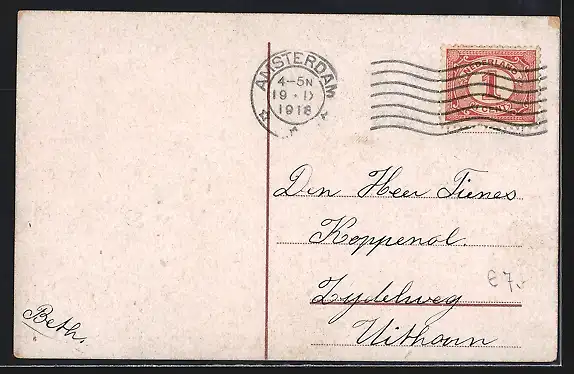 AMSTERDAM
4-5N
19·IX
1918
NEDERLAND
1
CENT
Den Heer Tienes
Koppenol.
Zydelweg
Uithoorn
€ 7,-
Beth.